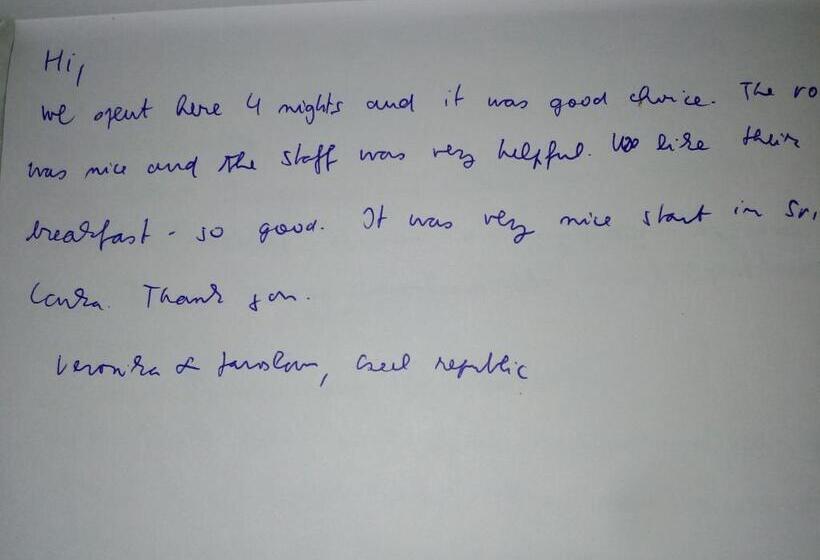 Hi,
We spent here 4 nights and it was good choice. The ro
was nice and the staff was very helpful. We like their
breakfast - so good. It was very nice start in Sri
Lanka. Thank you.
Veronika & Jaroslav, Czech republic